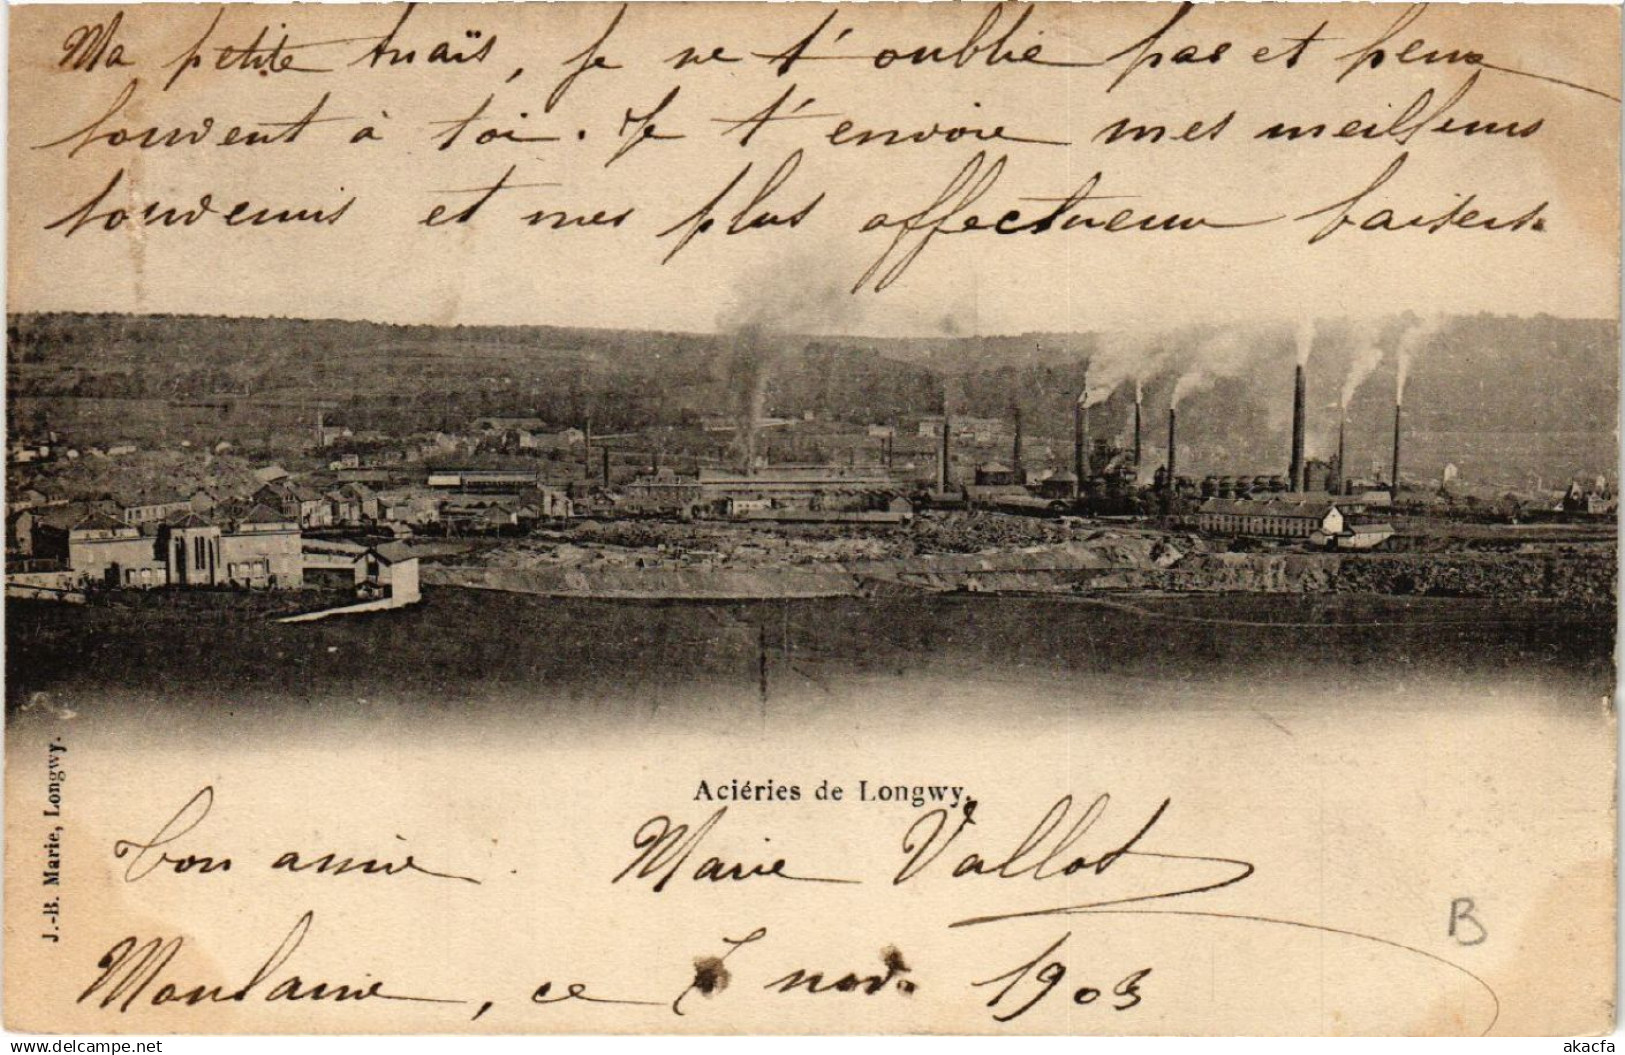 Ma petite Anaïs, Je ne t'oublie pas et pense
souvent à toi. Je t'envoie mes meilleurs
souvenirs et mes plus affectueux baisers.
Aciéries de Longwy.
J.-B. Marie, Longwy.
Ton amie. Marie Vallot
B
Moulaine, ce 7 nov. 1903
delcampe.net
akacfa